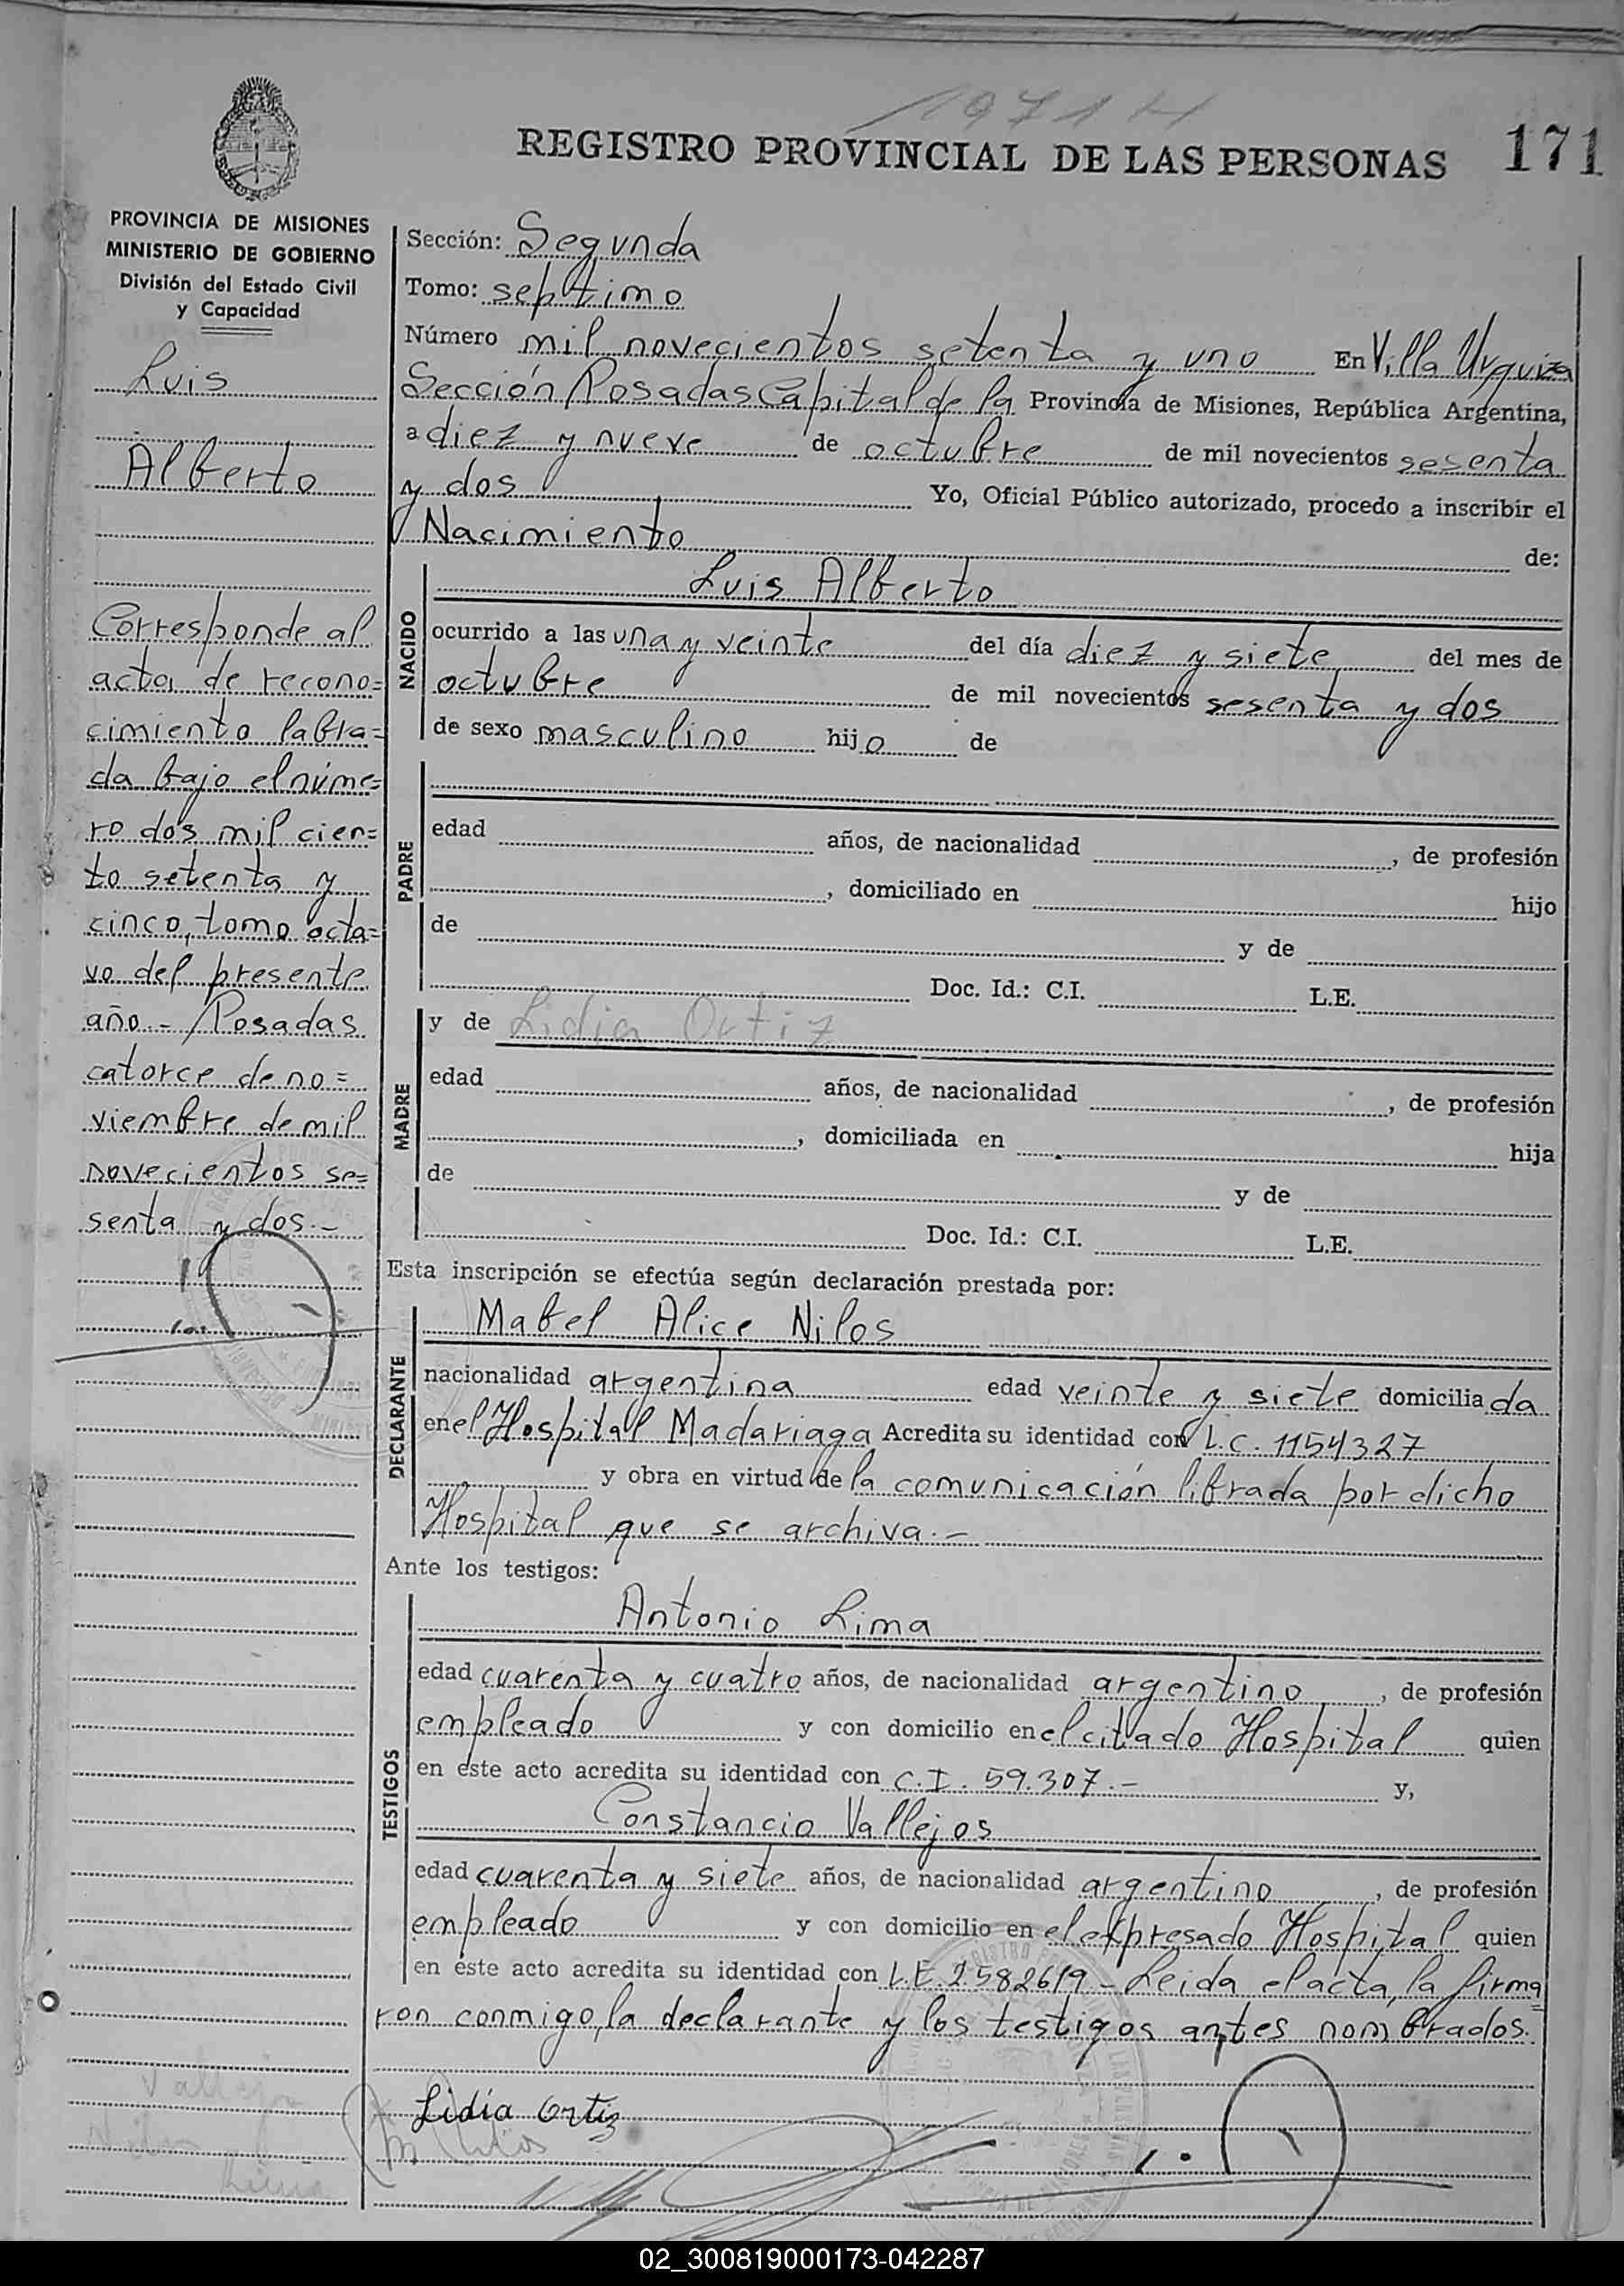 1971 H
REGISTRO PROVINCIAL DE LAS PERSONAS 171
PROVINCIA DE MISIONES
MINISTERIO DE GOBIERNO
División del Estado Civil
y Capacidad
Luis
Alberto
Corresponde al
acta de recono=
cimiento labra=
da bajo el núme=
ro dos mil cien=
to setenta y
cinco, tomo octa=
vo del presente
año.- Posadas
catorce de no=
viembre de mil
novecientos se=
senta y dos.-
Sección: Segunda
Tomo: septimo
Número mil novecientos setenta y uno En Villa Urquiza
Sección Posadas Capital de la Provincia de Misiones, República Argentina,
a diez y nueve de octubre de mil novecientos sesenta
y dos Yo, Oficial Público autorizado, procedo a inscribir el
Nacimiento de:
NACIDO
Luis Alberto
ocurrido a las una y veinte del día diez y siete del mes de
octubre de mil novecientos sesenta y dos
de sexo masculino hijo de
PADRE
edad años, de nacionalidad , de profesión
, domiciliado en hijo
de y de
Doc. Id.: C.I. L.E.
MADRE
y de Lidia Ortiz
edad años, de nacionalidad , de profesión
, domiciliada en hija
de y de
Doc. Id.: C.I. L.E.
Esta inscripción se efectúa según declaración prestada por:
DECLARANTE
Mabel Alice Nilos
nacionalidad argentina edad veinte y siete domiciliada
en el Hospital Madariaga Acredita su identidad con L.C. 1154327
y obra en virtud de la comunicación librada por dicho
Hospital que se archiva.-
Ante los testigos:
TESTIGOS
Antonio Lima
edad cuarenta y cuatro años, de nacionalidad argentino, de profesión
empleado y con domicilio en el citado Hospital quien
en este acto acredita su identidad con C.I. 59.307.- y,
Constancio Vallejos
edad cuarenta y siete años, de nacionalidad argentino, de profesión
empleado y con domicilio en el expresado Hospital quien
en este acto acredita su identidad con L.E. 2582619 - Leida el acta, la firma=
ron conmigo, la declarante y los testigos antes nombrados.
Lidia Ortiz
Vallejos
Nilos
Lima
02_300819000173-042287